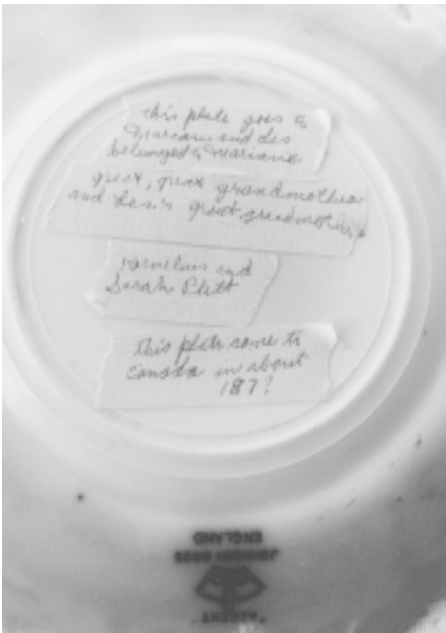 this plate goes to
and Les
belonged to Mariane
great, great grandmother
and Les's great grandmother
Kornelius and
Sarah Plett
this plate came to
Canada in about
187?
"REGENT"
JOHNSON BROS
ENGLAND